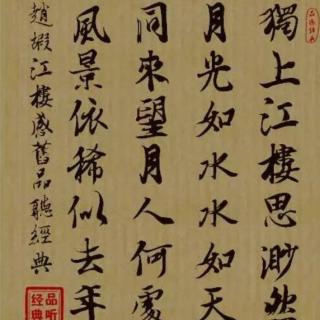 獨上江樓思渺然
月光如水水如天
同來望月人何處
風景依稀似去年
趙嘏江樓感舊品聽經典
品听
经典